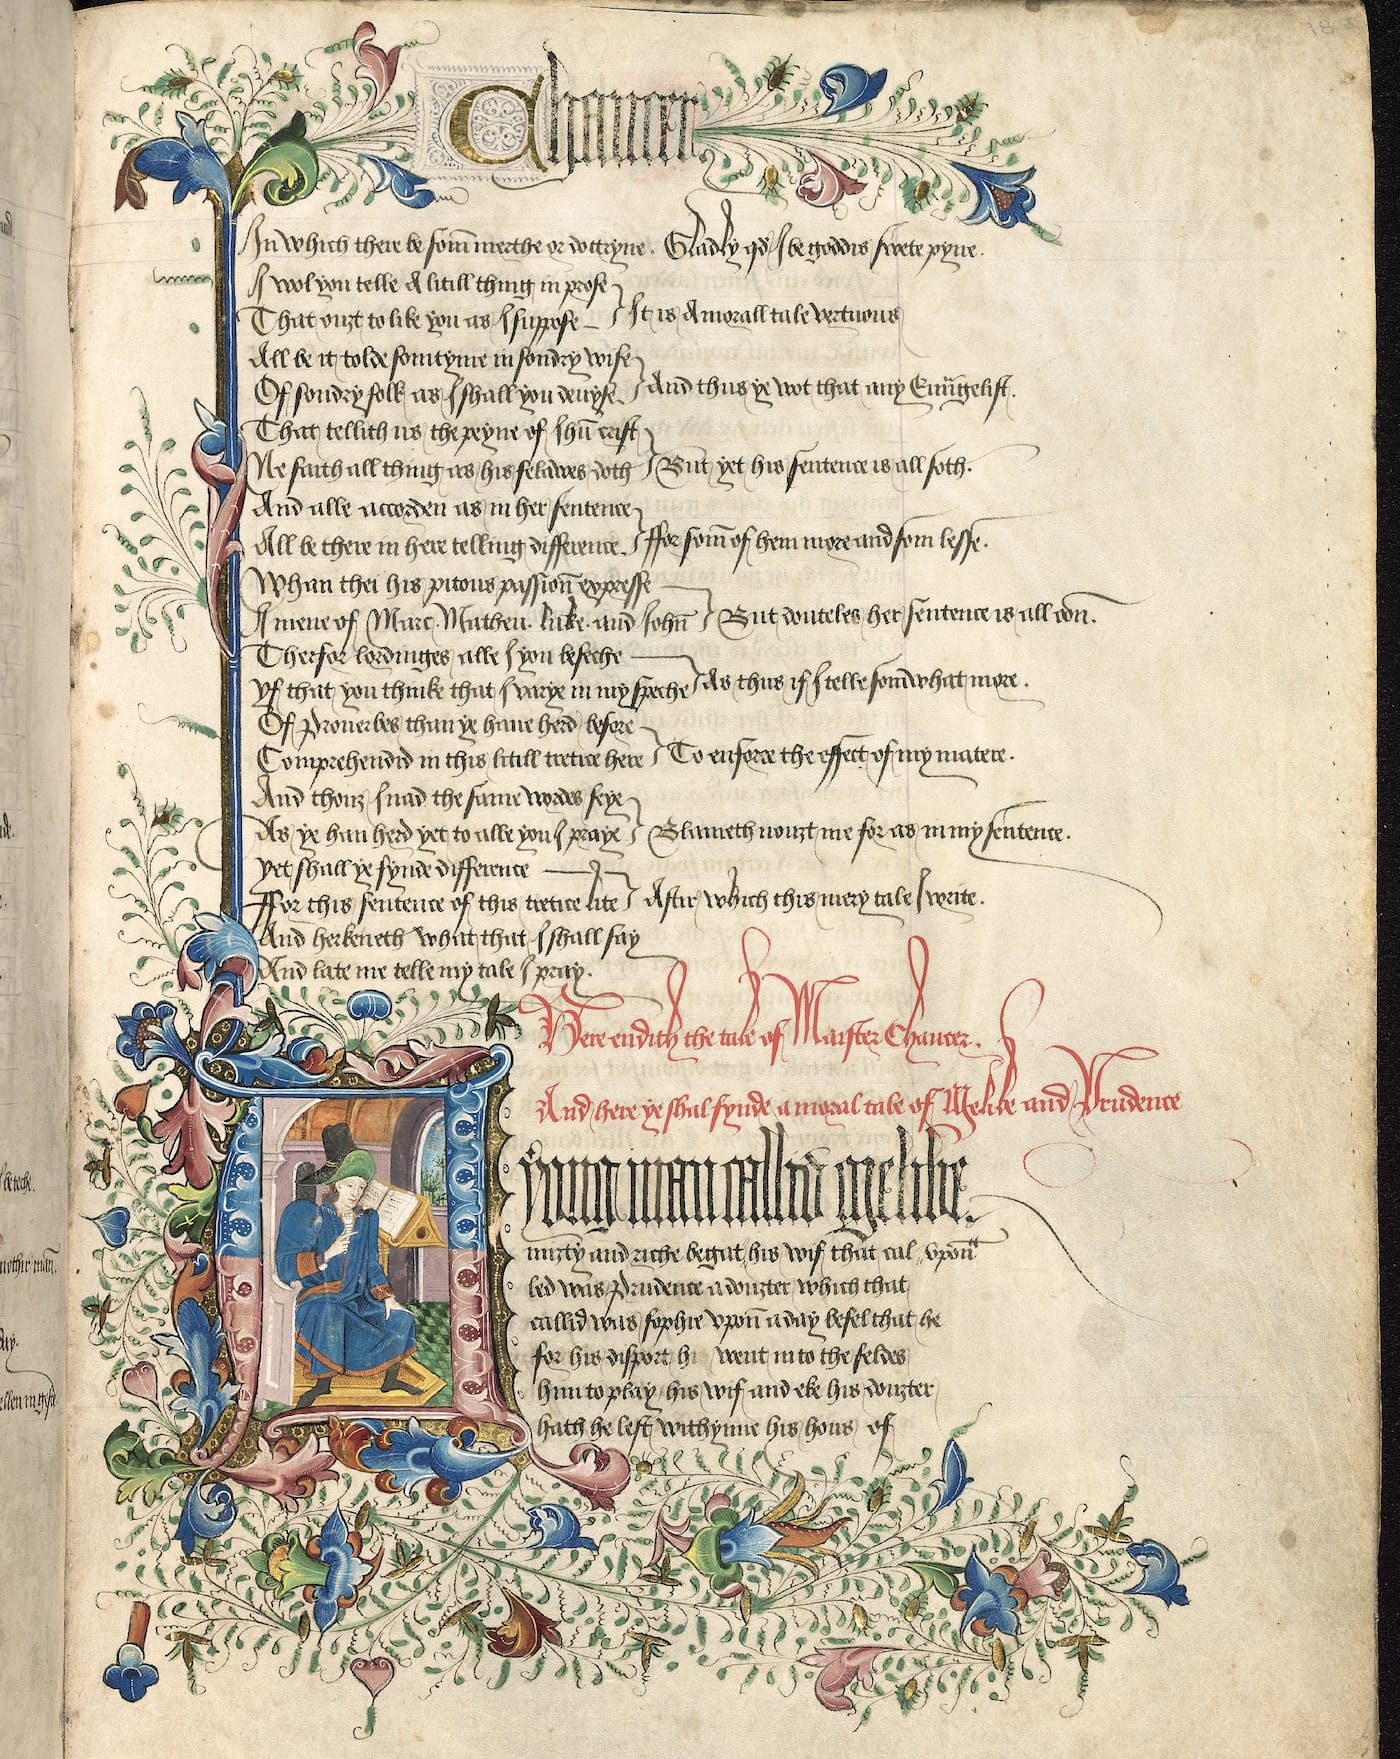 Chaucer
In which there be som merthe or doctryne. Gladly qd I be goddis swete pyne.
I wol you telle A litill thing in prose
That ouȝt to like you as I suppose It is A morall tale vertuous
All be it tolde somtyme in sondry wise
Of sondry folk as I shall you deuyse. And thus ye wot that any Euūgelist.
That tellith us the peyne of Ihū crist
Ne saith all thing as his felawes doth But yet his sentence is all soth.
And alle accorden as in her sentence
All be there in here telling difference. ffor som of hem more and som lesse.
Whan thei his pitous passion expresse
I mene of Marc. Matheu. luke. and Iohn̄ But douteles her sentence is all oon.
Therfor lordinges alle I you beseche
yf that you thinke that I varye in my speche As thus if I telle somwhat more.
Of Prouerbes than ye haue herd before
Comprehendid in this litill tretice here To enforce the effect of my matere.
And thouȝ I nad the same wordes seye
As ye han herd yet to alle you I praye Blameth nouȝt me for as in my sentence.
yet shall ye fynde difference
ffor this sentence of this tretice lite Aftir which this mery tale I write.
And herkeneth what that I shall say
And late me telle my tale I pray.
Here endith the tale of Maister Chaucer.
And here ye shal fynde a moral tale of Melibe and Prudence
yong man callid Melibe.
miȝty and riche begat his wif that cal vpon̄
led was Prudence a douȝter which that
callid was sophie vpon̄ a day befel that he
for his disport h went in to the feldes
him to play his wif and eke his douȝter
hath he left withynne his hous of